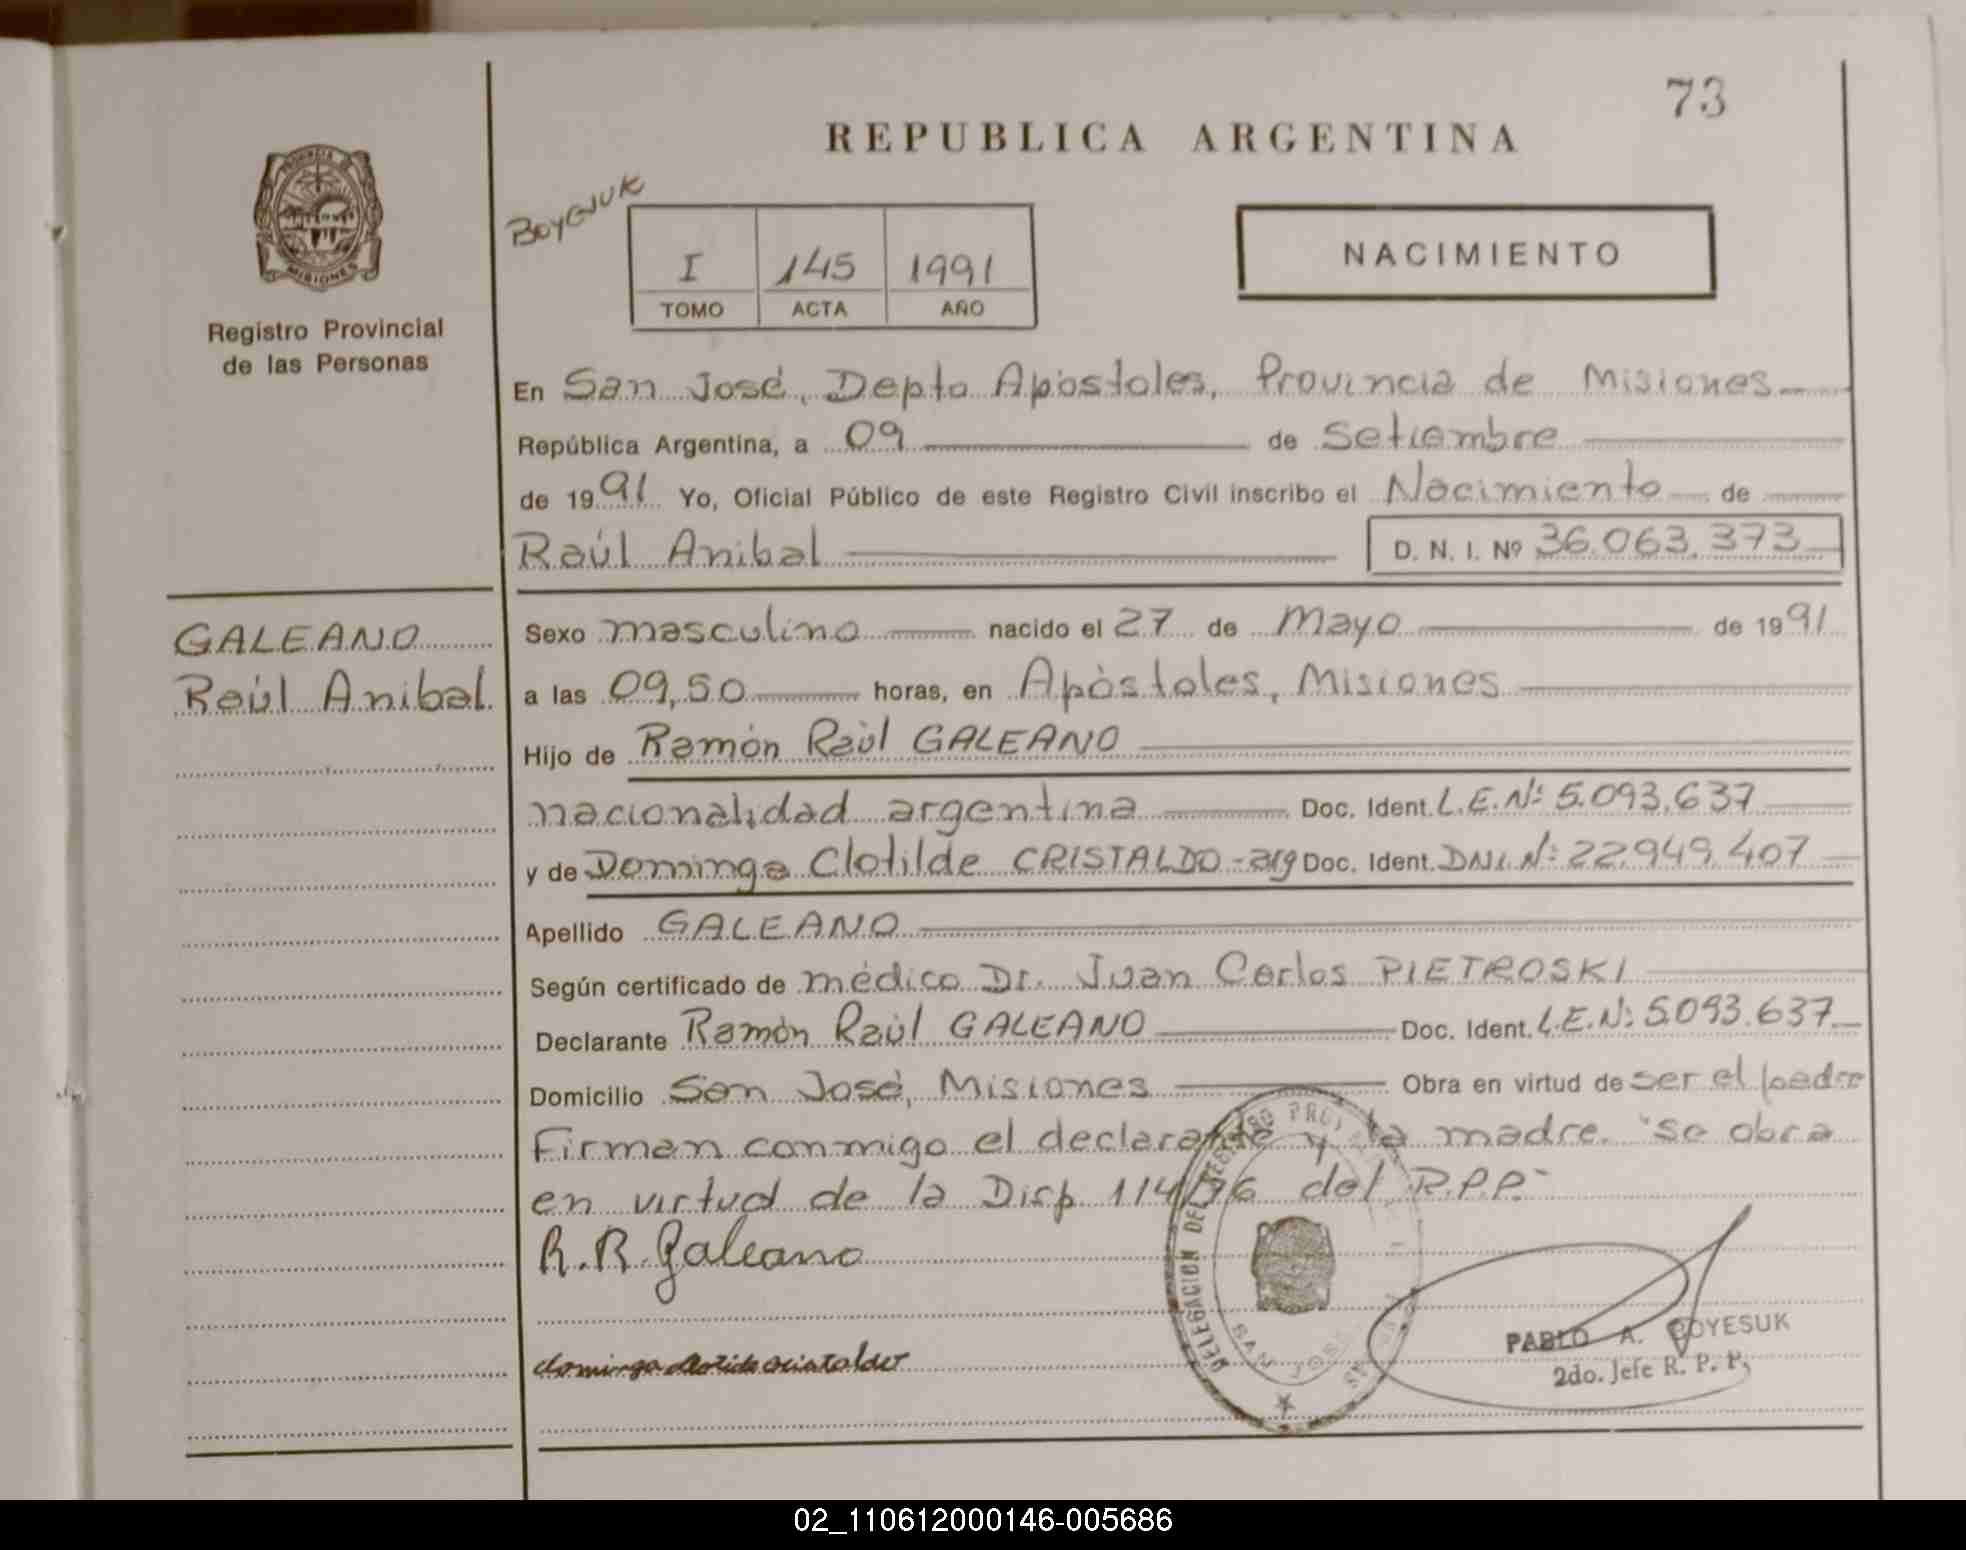 73
REPUBLICA ARGENTINA
PROVINCIA DE
MISIONES
Registro Provincial
de las Personas
I 145 1991
TOMO ACTA AÑO
NACIMIENTO
En San José, Depto Apóstoles, Provincia de Misiones
República Argentina, a 09 de Setiembre
de 1991 Yo, Oficial Público de este Registro Civil inscribo el Nacimiento de
Raúl Anibal D. N. I. Nº 36.063.373
GALEANO
Raúl Anibal
Sexo masculino nacido el 27 de Mayo de 1991
a las 09,50 horas, en Apóstoles, Misiones
Hijo de Ramón Raúl GALEANO
nacionalidad argentina Doc. Ident. L.E.Nº: 5.093.637
y de Dominga Clotilde CRISTALDO-arg Doc. Ident. DNI.Nº: 22.949.407
Apellido GALEANO
Según certificado de médico Dr. Juan Carlos PIETROSKI
Declarante Ramón Raúl GALEANO Doc. Ident. L.E.Nº: 5.093.637
Domicilio San José, Misiones Obra en virtud de ser el padre
Firman conmigo el declarante y la madre. "se obra
en virtud de la Disp. 114/76 del R.P.P."
R.R. Galeano
DELEGACION DEL REGISTRO
SAN JOSE
PABLO A. BOYESUK
2do. Jefe R. P. P.
02_110612000146-005686